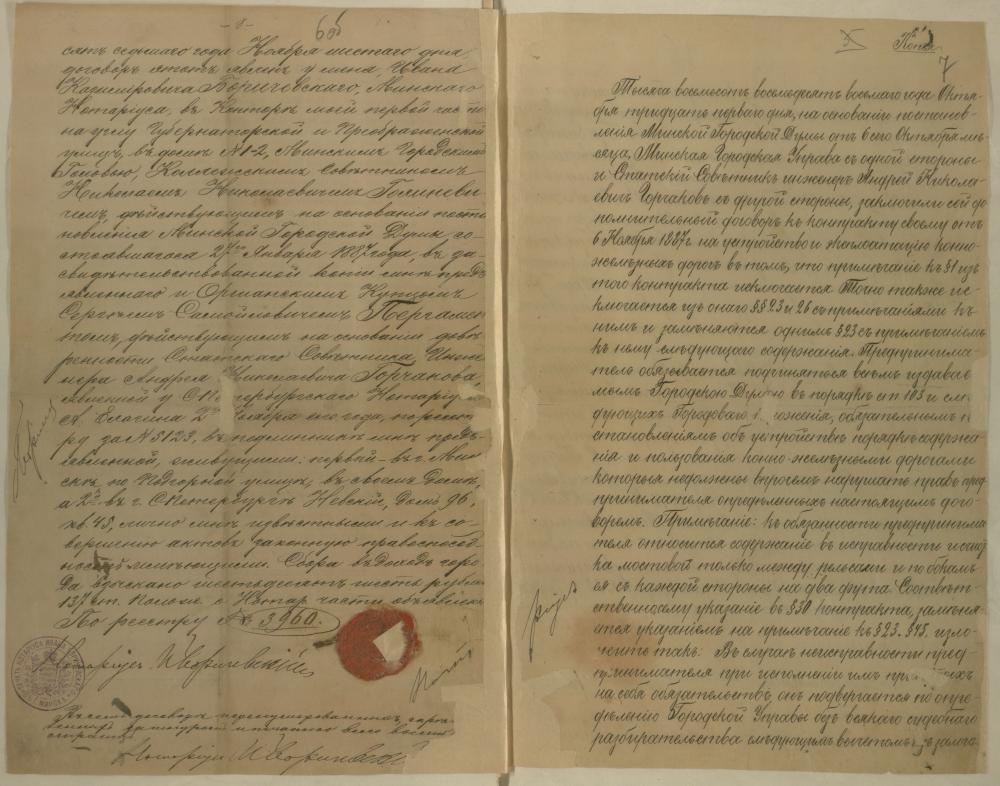 -8-
66
сятъ седьмаго года Ноября шестаго дня
договоръ этотъ явленъ у меня, Ивана
Казимировича Боричевскаго, Минскаго
Нотаріуса, въ Конторѣ моей первой части
на углу Губернаторской и Преображенской
улицъ, въ домѣ №1-2, Минскимъ Городскимъ
Головою, Коллежскимъ Совѣтникомъ
Николаемъ Николаевичемъ Голиневи-
чемъ, дѣйствующимъ на основаніи поста
новленія Минской Городской Думы со-
стоявшагося 27го Января 1887 года, въ за
свидѣтельствованной копіи мнѣ предъ
явленнаго и Оршанскимъ Купцомъ
Сергѣемъ Самойловичемъ Пергамен
томъ, дѣйствующимъ на основаніи довѣ
ренности Статскаго Совѣтника, Инже
нера Андрея Николаевича Горчакова,
явленной у С.Петербургскаго Нотаріуса
А. Елагина 2го Ноября сего года, по реест
ру за №5123, въ подлинникѣ мнѣ предъ-
явленной, живущими: первый – въ г. Мин
скѣ, по Подгорной улицѣ, въ своемъ домѣ,
а 2й въ г. С.Петербургѣ Невскій, домъ 96,
кв. 45, лично мнѣ извѣстными и къ со-
вершенію актовъ законную правоспособ-
ность имѣющими. Сбора въ доходъ горо-
да взыскано шестьдесятъ шесть рублей
137 ст. Полож. о Нотар. части объявлена
По реестру № 3960.
Нотаріусъ И Боричевскій
Въ семъ договорѣ
Нотаріусъ И Боричевскій
Копія
7
Тысяча восемьсотъ восемьдесятъ восьмаго года Октя-
бря тридцать перваго дня, на основаніи постанов-
ленія Минской Городской Думы отъ 6 его Октября мѣ-
сяца, Минская Городская Управа съ одной стороны
и Статскій Совѣтникъ инженеръ Андрей Никола-
евичъ Горчаковъ съ другой стороны, заключили сей до
полнительный договоръ къ контракту своему отъ
6 Ноября 1887 г. на устройство и эксплоатацію конно-
желѣзныхъ дорогъ въ томъ, что примѣчаніе къ §1 изъ
того контракта исключается. Точно также ис-
ключается изъ онаго §§23 и 26 съ примѣчаніями къ
нимъ и замѣняются однимъ §23 съ примѣчаніемъ
къ нему слѣдующаго содержанія. Предпринима-
тель обязывается подчиняться всѣмъ издавае
мымъ Городскою Думою въ порядкѣ ст 103 и слѣ
дующихъ Городоваго ложенія, обязательнымъ п
становленіямъ объ устройствѣ порядкѣ содержа-
нія и пользованія конно-желѣзными дорогами
которыя недолжны впрочемъ нарушать правъ пред
принимателя опредѣленныхъ настоящимъ дого-
воромъ. Примѣчаніе: къ обязанности предпринима
теля относится содержаніе въ исправности и
ка мостовой только между рельсами и по бокамъ
ея съ каждой стороны на два фута. Соотвѣт
ственно сему указаніе въ §30 контракта, замѣня-
ется указаніемъ на примѣчаніе къ §23. §45. изло-
жить такъ: Въ случаѣ неисправности пред-
принимателя при исполненіи имъ пр тыхъ
на себя обязательствъ, онъ подвергается по опре-
дѣленію Городской Управы безъ всякаго судебнаго
разбирательства слѣдующимъ вычетомъ изъ залога